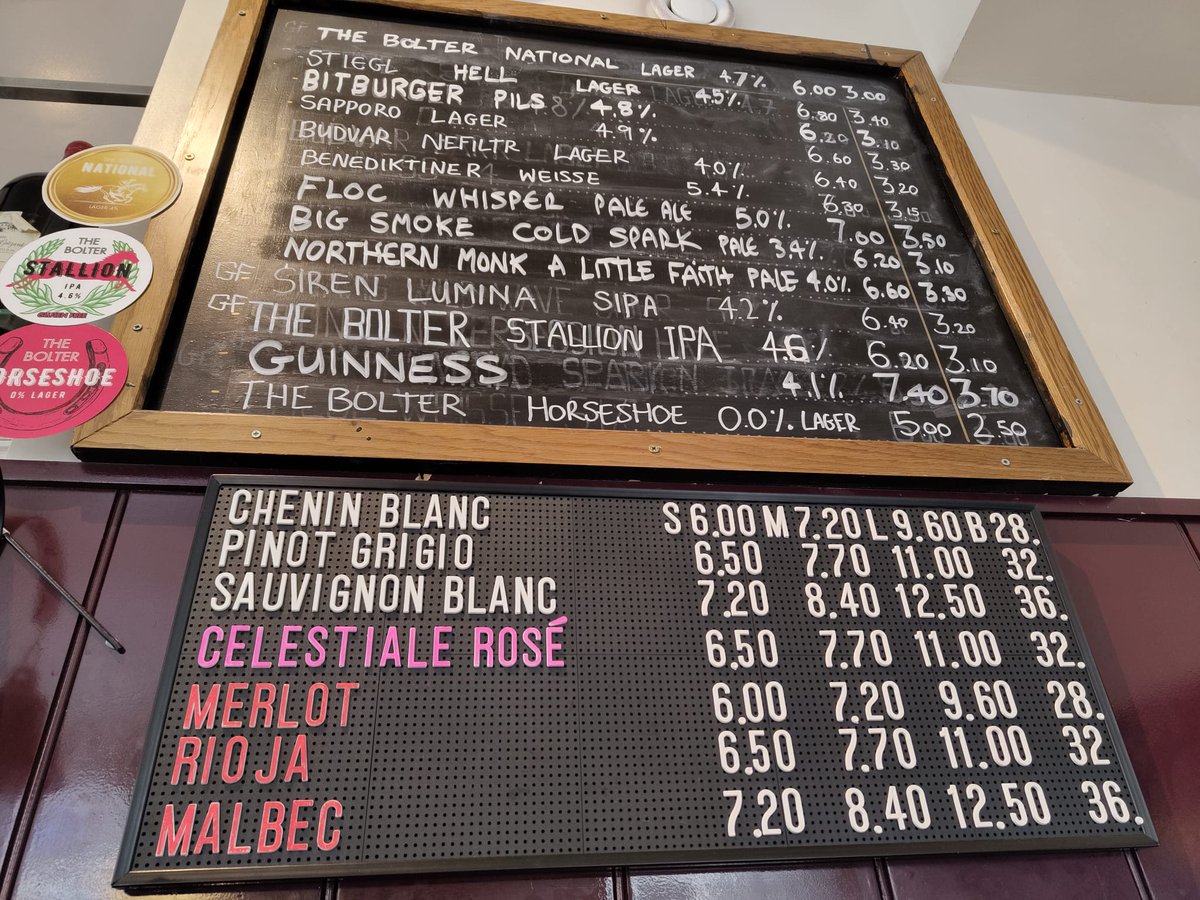 GF THE BOLTER NATIONAL LAGER 4.7% 6.00 3.00
STIEGL HELL LAGER 4.5% 6.80 3.40
BITBURGER PILS 4.8% 6.20 3.10
SAPPORO LAGER 4.9% 6.60 3.30
BUDVAR NEFILTR LAGER 4.0% 6.40 3.20
BENEDIKTINER WEISSE 5.4% 6.30 3.15
FLOC WHISPER PALE ALE 5.0% 7.00 3.50
BIG SMOKE COLD SPARK PALE 3.4% 6.20 3.10
NORTHERN MONK A LITTLE FAITH PALE 4.0% 6.60 3.30
GF SIREN LUMINA SIPA 4.2% 6.40 3.20
GF THE BOLTER STALLION IPA 4.6% 6.20 3.10
GUINNESS 4.1% 7.40 3.70
THE BOLTER HORSESHOE 0.0% LAGER 5.00 2.50
NATIONAL
THE
BOLTER
STALLION
IPA
4.6%
GLUTEN FREE
THE
BOLTER
ORSESHOE
0% LAGER
CHENIN BLANC S 6.00 M 7.20 L 9.60 B 28.
PINOT GRIGIO 6.50 7.70 11.00 32.
SAUVIGNON BLANC 7.20 8.40 12.50 36.
CELESTIALE ROSÉ 6.50 7.70 11.00 32.
MERLOT 6.00 7.20 9.60 28.
RIOJA 6.50 7.70 11.00 32
MALBEC 7.20 8.40 12.50 36.